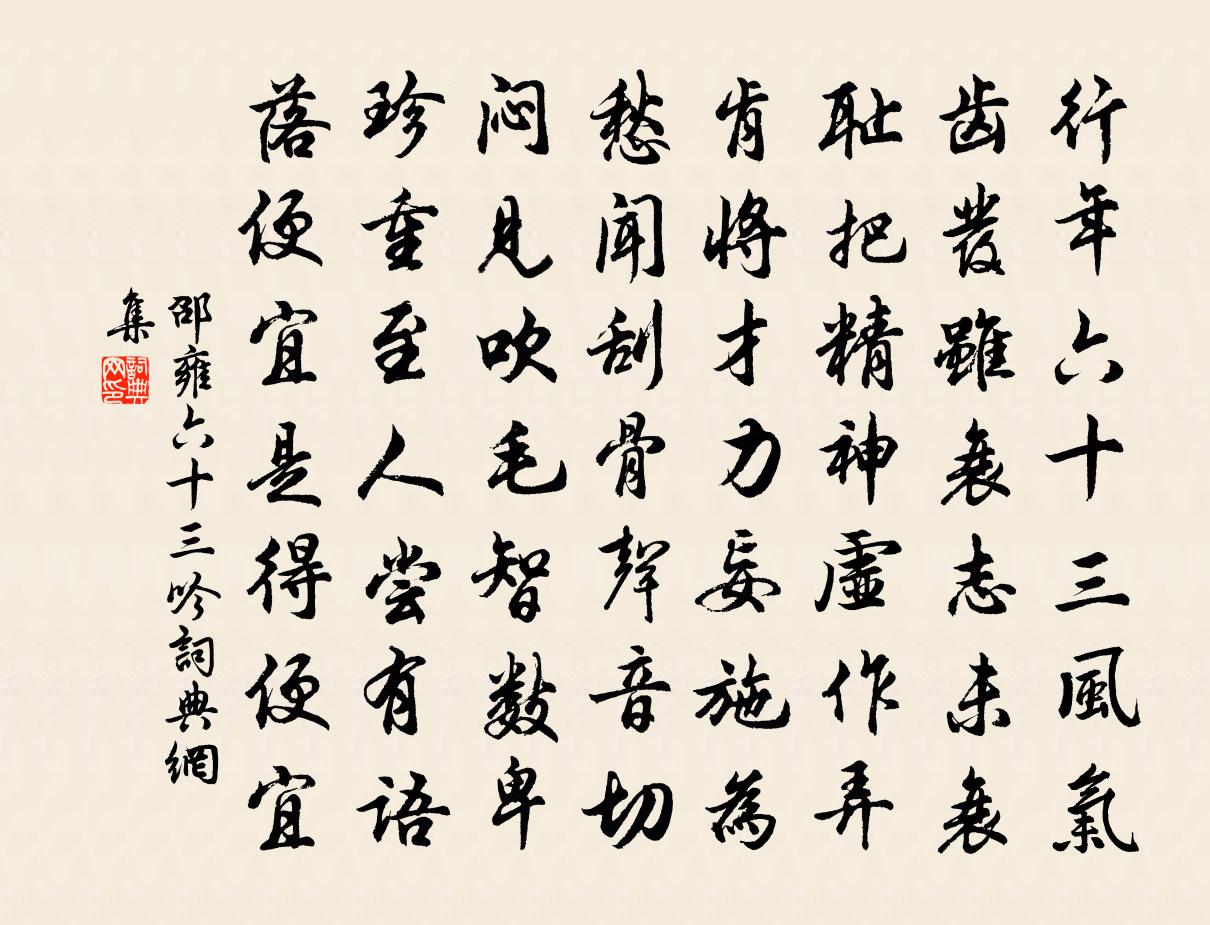 行年六十三風氣
齿發雖衰志未衰
耻把精神虛作弄
肯將才力妄施為
愁聞刮骨聲音切
闷見吹毛智數卑
珍重至人尝有語
落便宜是得便宜
邵雍六十三吟詞典網
集
詞典網印